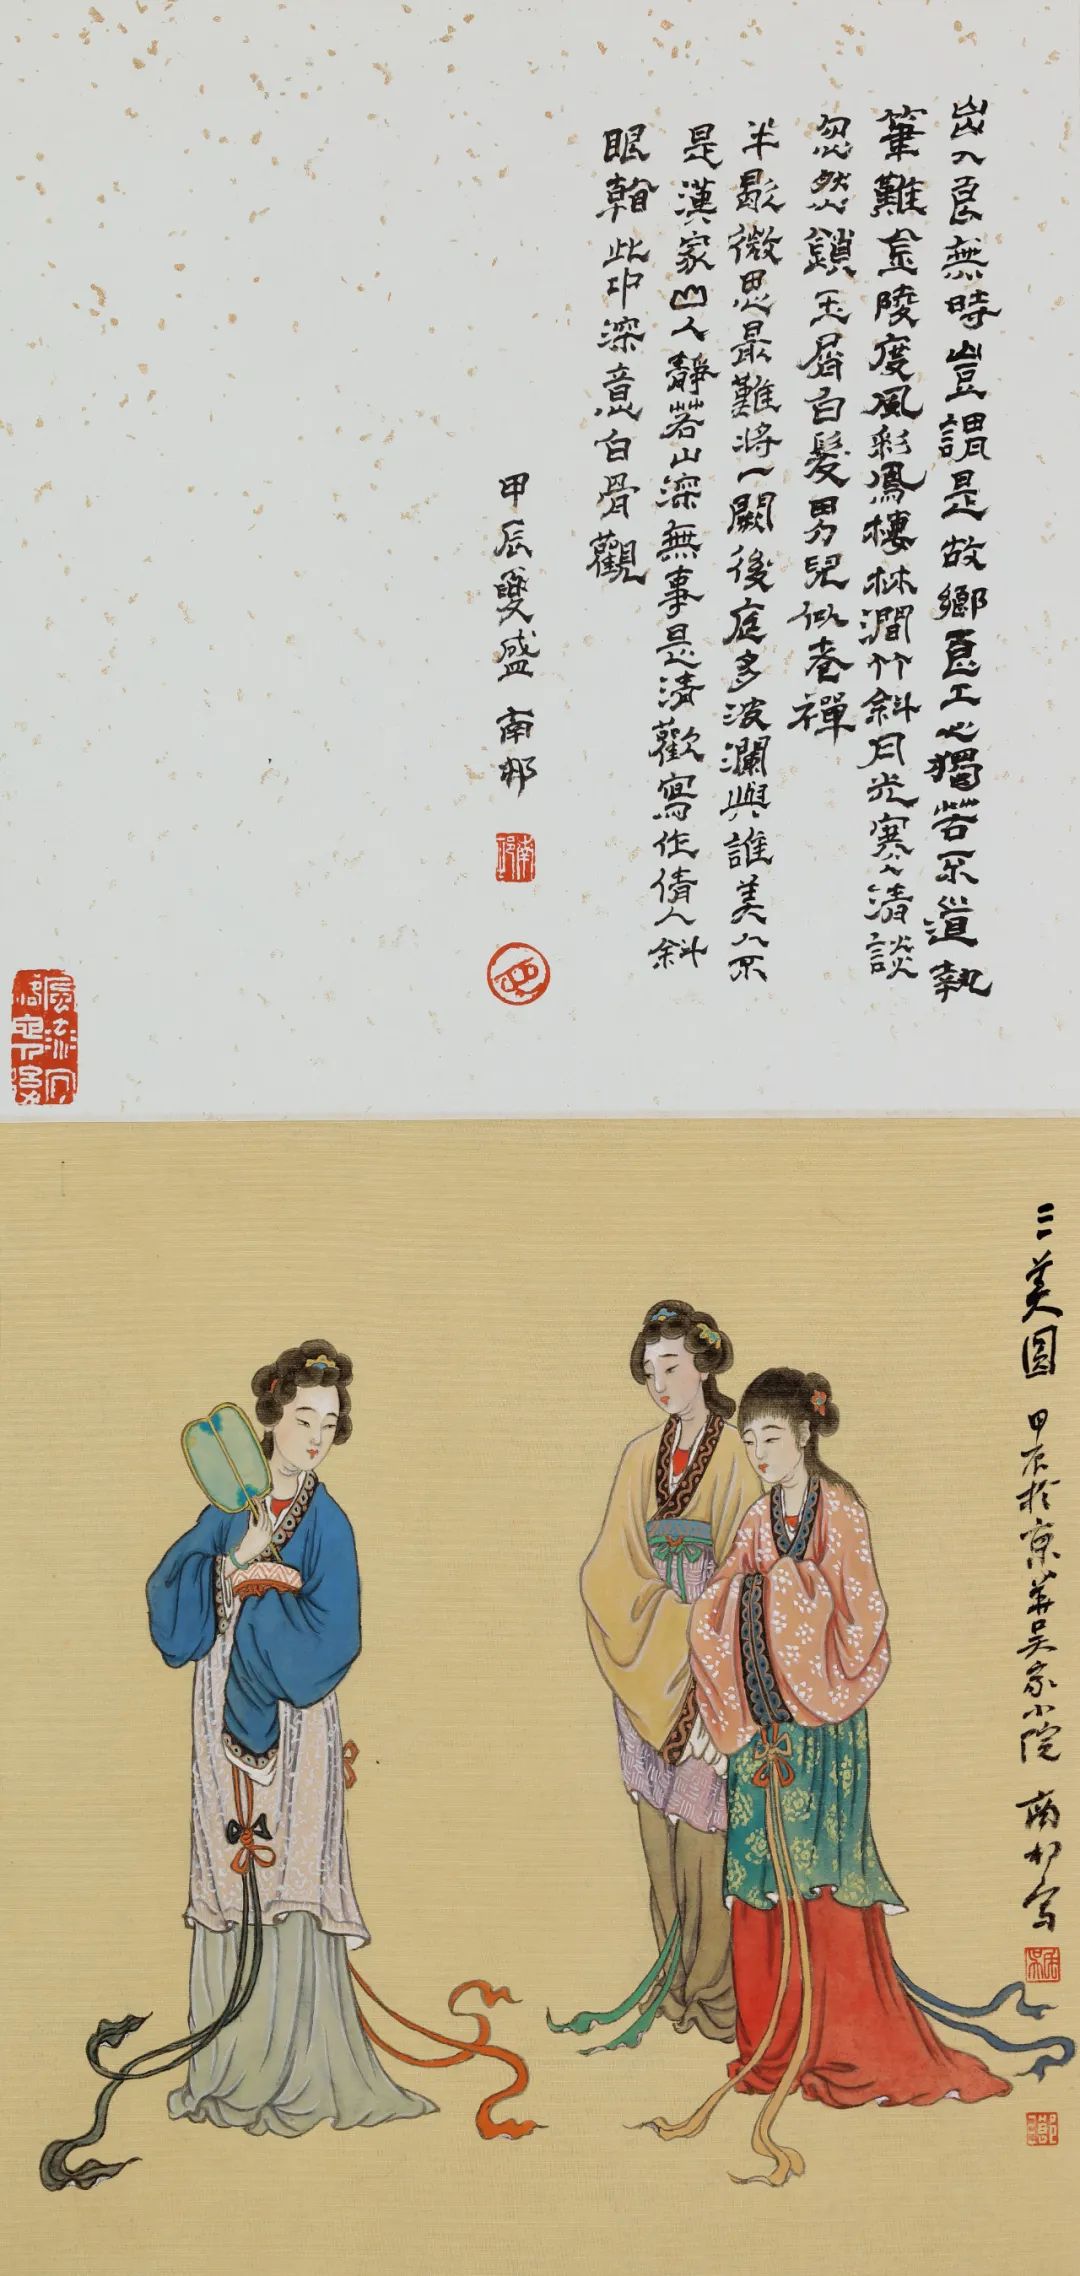 出入良無時豈謂是故鄉良工心獨苦不道執
筆難金陵度風彩鳳樓林澗竹斜月光寒清談
忽然鎖玉屑白髮男兒似老禪
半歇微思最難將一闕後庭多波瀾與誰美人不
是漢家山人靜若山深無事是清歡寫作倩人斜
眼翰此中深意白骨觀
甲辰夏盛 南邨
南邨
三美圖 甲辰於京華吳家小院 南邨寫